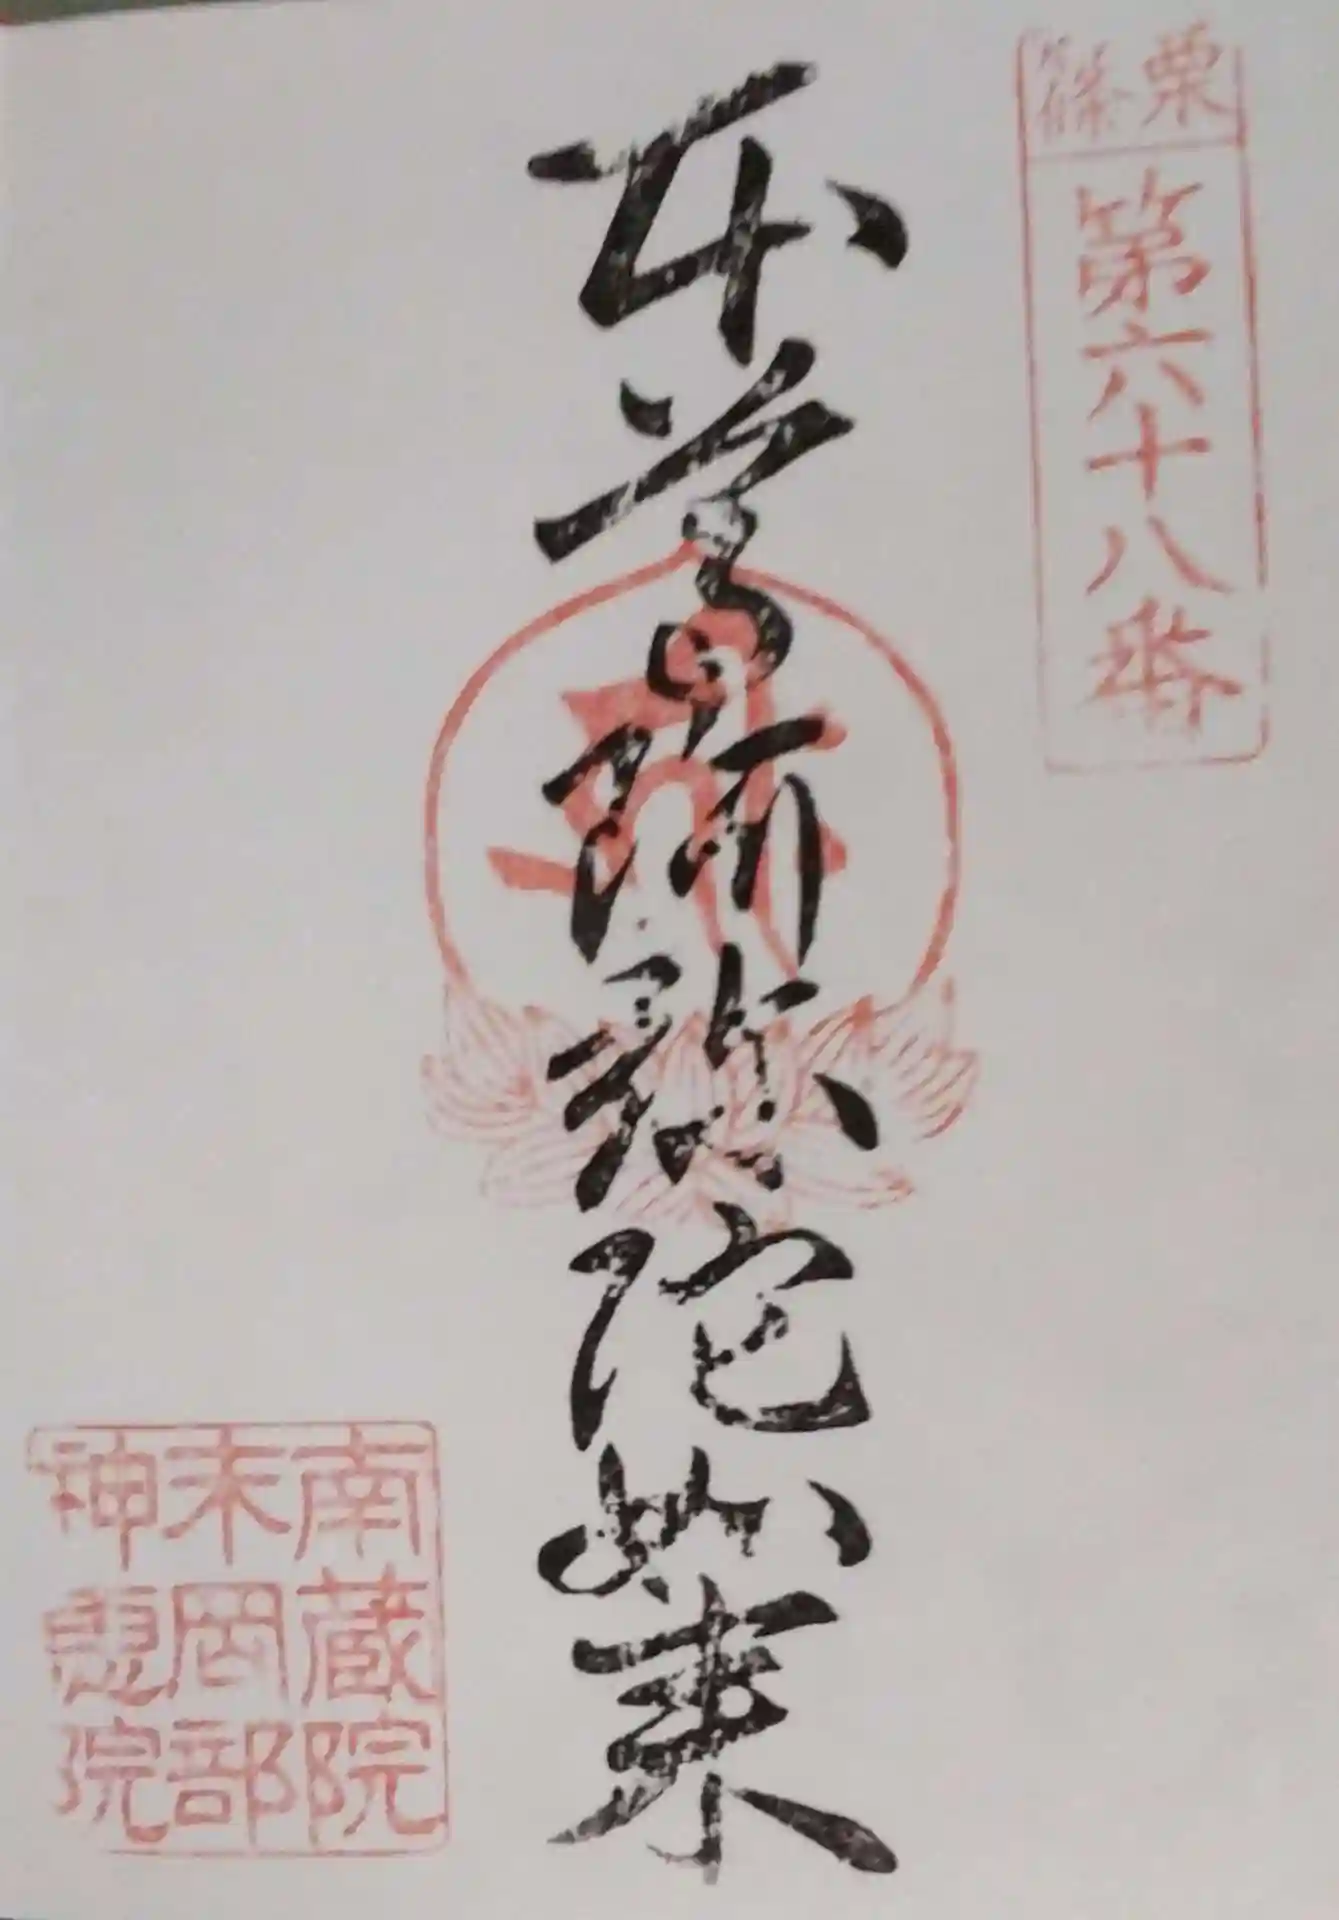 粟篠
第六十八番
本尊阿弥陀如来
南蔵院
末岡部
神恵院